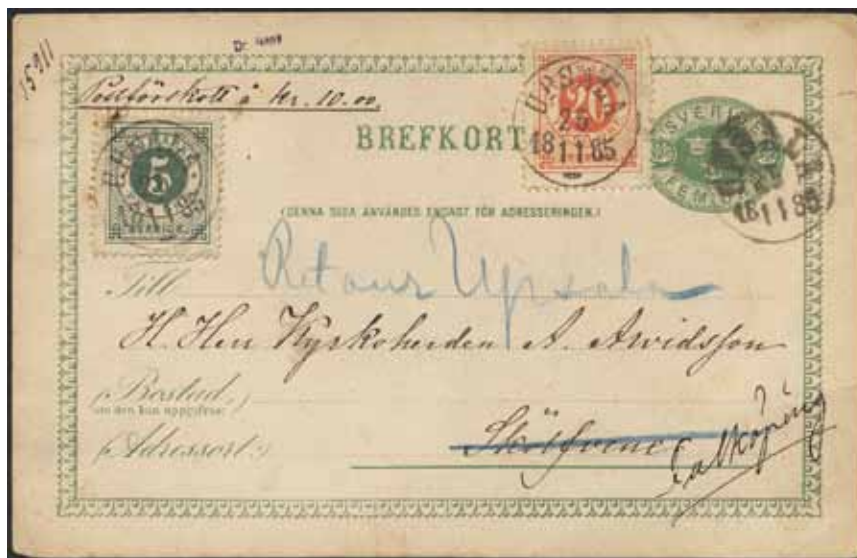 15911
Postförskott à kr. 10.00.
20
UPSALA
25
18 11 85
SVERIGE
FEM
BREFKORT
5
18 11 85
(DENNA SIDA ANVÄNDES ENDAST FÖR ADRESSERINGEN.)
Retour Upsala
Till
H. Herr Kyrkoherden A. Arvidsson
(Bostad,)
om den kan uppgifvas:
(Adressort:)
Falköping